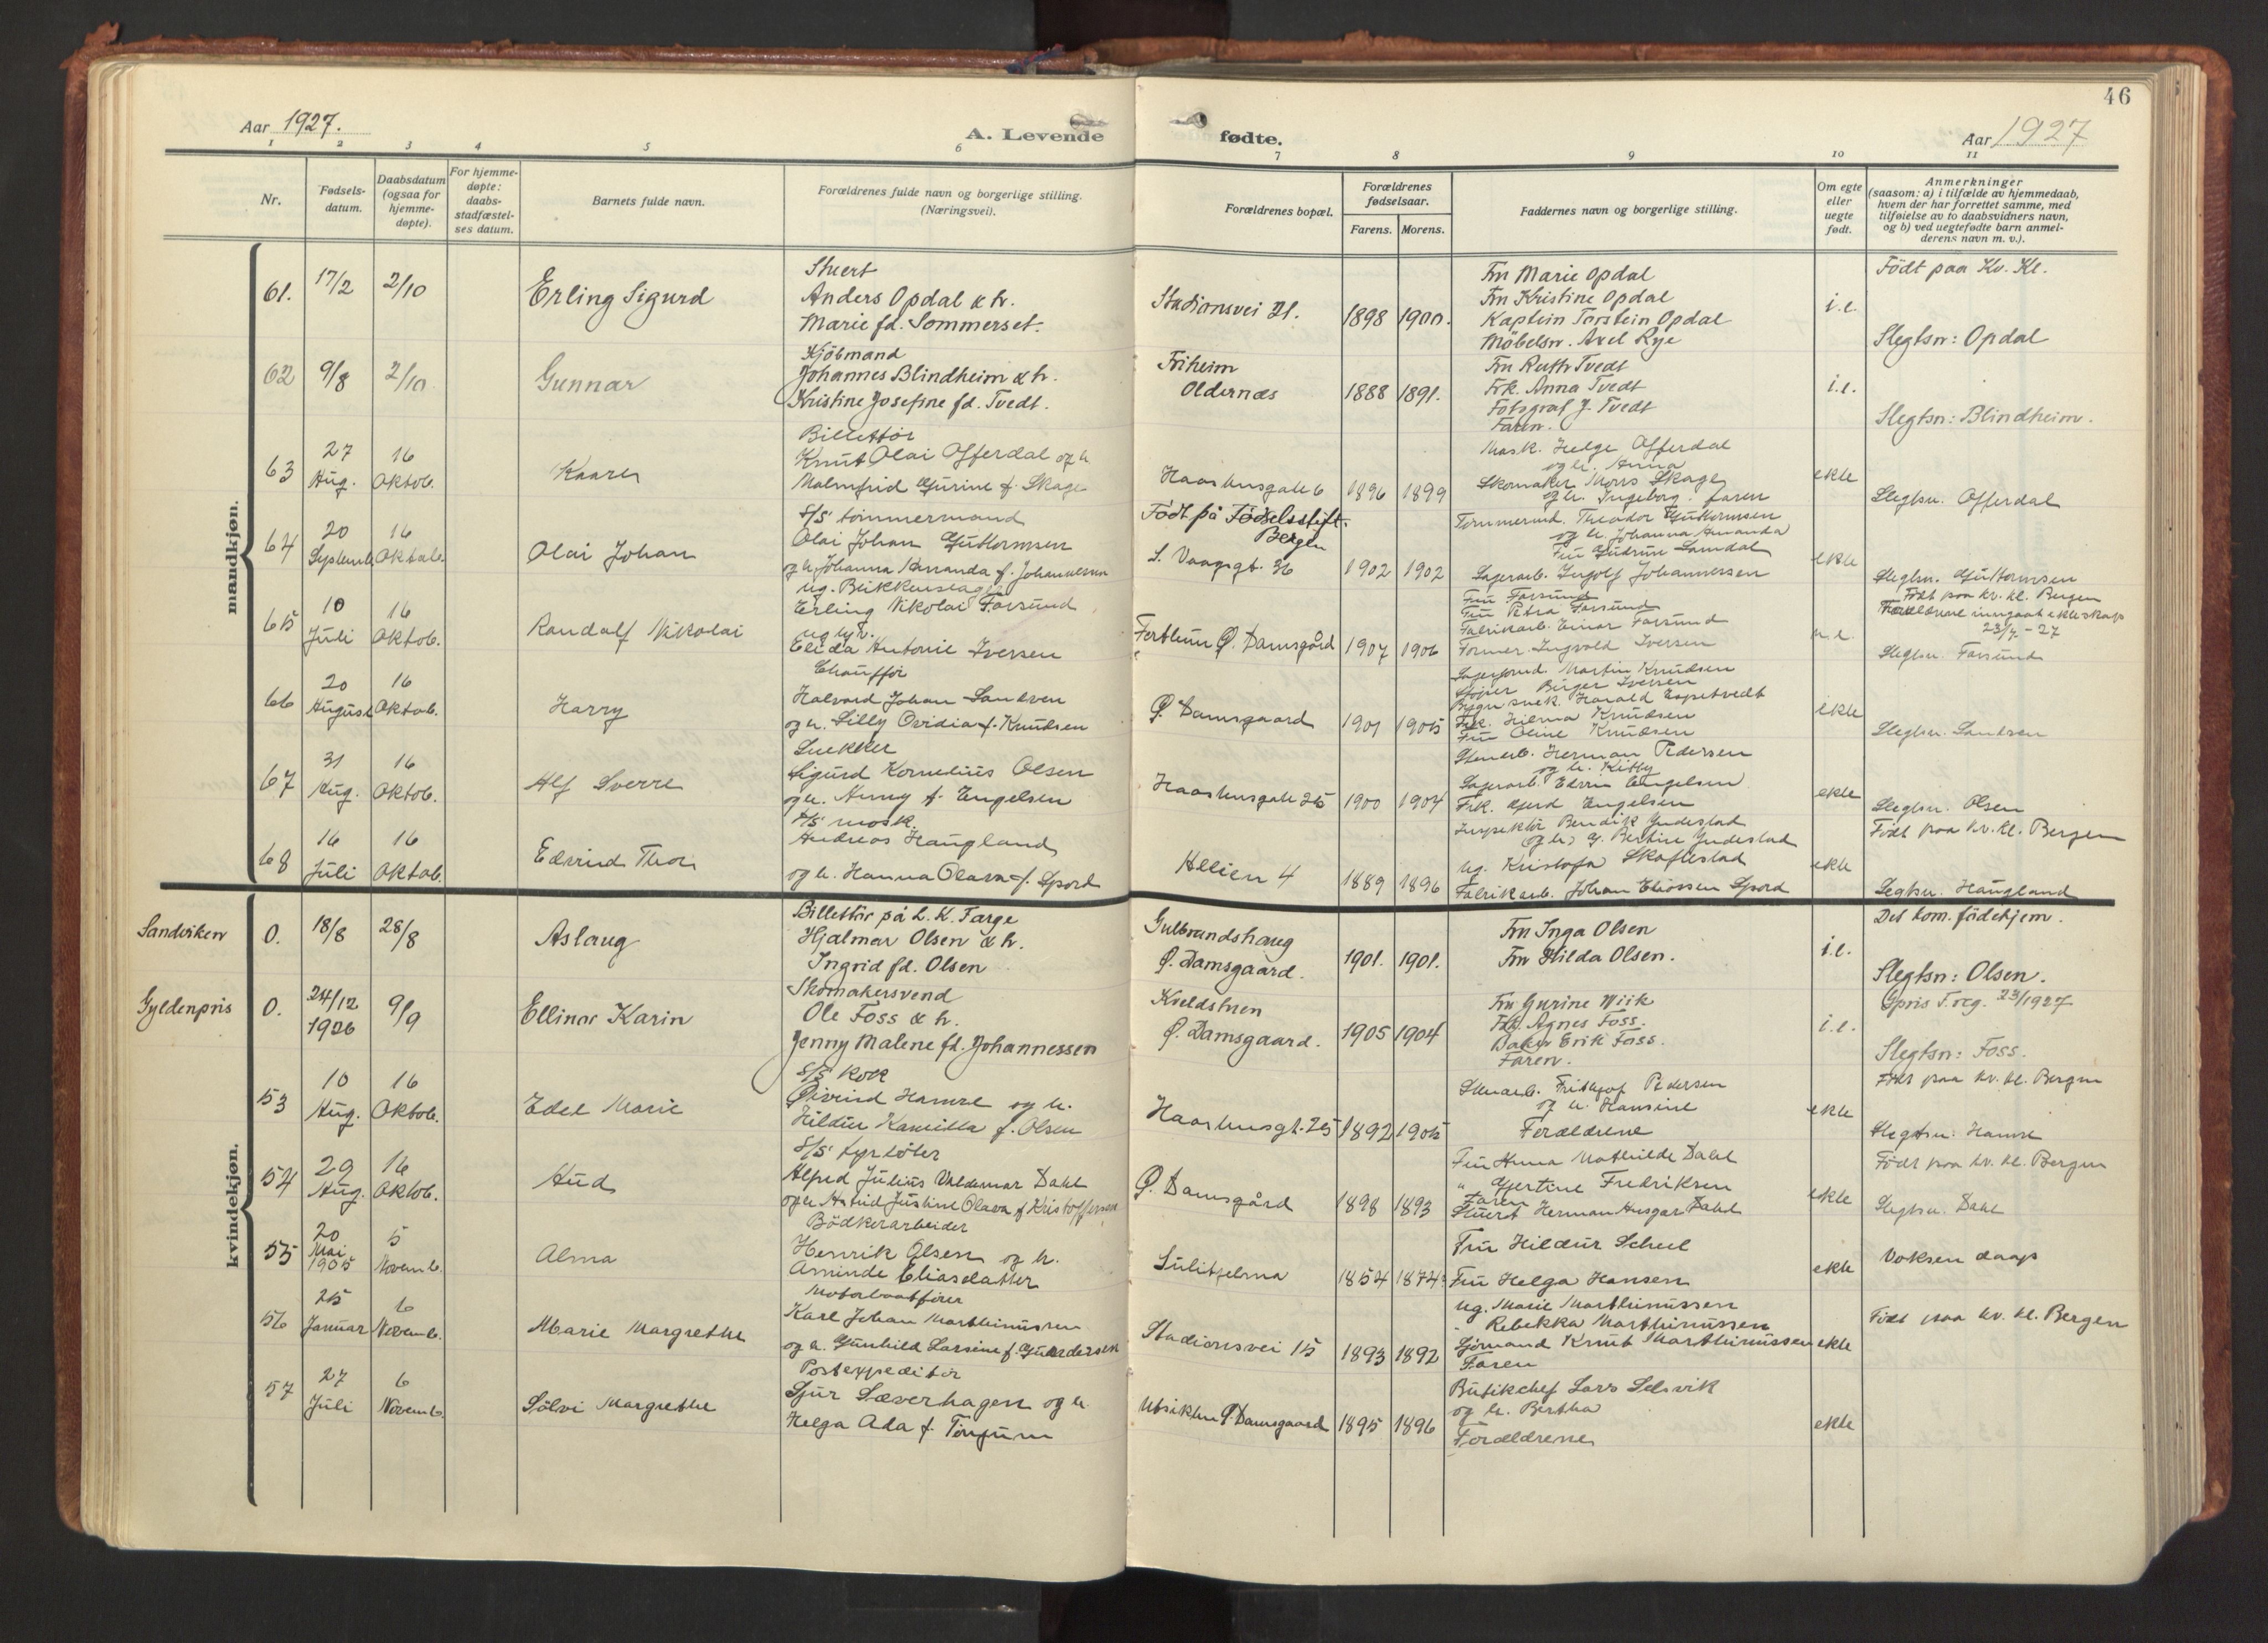 46
Aar 1927.
A. Levende fødte.
Aar 1927
1 2 3 4 5 6 7 8 9 10 11
Nr.
Fødsels-
datum.
Daabsdatum
(ogsaa for
hjemme-
døpte).
For hjemme-
døpte:
daabs-
stadfæstel-
ses datum.
Barnets fulde navn.
Forældrenes fulde navn og borgerlige stilling.
(Næringsvei).
Forældrenes bopæl.
Forældrenes
fødselsaar.
Farens. Morens.
Faddernes navn og borgerlige stilling.
Om egte
eller
uegte
født.
Anmerkninger
(saasom: a) i tilfælde av hjemmedaab,
hvem der har forrettet samme, med
tilføielse av to daabsvidners navn,
og b) ved uegtefødte barn anmel-
derens navn m. v.).
mandkjøn.
61. 17/2 2/10
Erling Sigurd
Stuert
Anders Opdal & h.
Marie fd. Sommerset.
Stadionsvei 21.
1898 1900.
Fru Marie Opdal
Fru Kristine Opdal
Kaptein Torstein Opdal
Møbelsn. Axel Rye
i.e.
Født paa Kv. Kl.
Slegtsn: Opdal
62 9/8 2/10
Gunnar
Kjøbmand
Johannes Blindheim & h.
Kristine Josefine fd. Tvedt.
Friheim
Oldernæs
1888 1891.
Fru Ruth Tvedt
Frk. Anna Tvedt
Fotograf J. Tvedt
Faren.
i.e.
Slegtsn: Blindheim.
63 27 Aug. 16 Oktob.
Kaare
Billettør
Knut Olai Offerdal og h.
Malmfrid Gurine f. Skage
Haashusgate 6
1896 1899
Mask. Helge Offerdal
og h. Anna
Skomaker Mons Skage
og h. Ingeborg. faren
ekte
Slegtsn. Offerdal
64 20 Septemb. 16 Oktob.
Olai Johan
S/S tømmermand
Olai Johan Guttormsen
og h. Johanna Amanda f. Johannessen
Født på Fødselsstift.
Bergen
S. Vaagsgt. 36
1902 1902
Tømmermd. Theodor Guttormsen
og h. Johanna Amanda
Fru Gudrun Samdal
Lagerarb. Ingolf Johannessen
ekte
Slegtsn. Guttormsen
65 10 Juli 16 Oktob.
Randolf Nikolai
Ug. Blikkenslager
Erling Nikolai Forsund
ug. pr.
Elida Antonie Iversen
Fortun Ø. Damsgård
1907 1906
Fru Forsund
Fru Petra Forsund
Fabrikarb. Einar Forsund
Former Ingvald Iversen
u.e.
Født paa kv. kl. Bergen
Forældrene inngaat ekteskap
23/7 - 27
Slegtsn. Forsund
66 20 August 16 Oktob.
Harry
Chauffør
Halvard Johan Sandven
og h. Lilly Ovidia f. Knudsen
Ø. Damsgaard
1901 1905
Lagerformd. Martin Knudsen
Birger Iversen
Harald Espetvedt
Frk. Hilma Knudsen
Fru Oline Knudsen
ekte
Slegtsn. Sandven
67 31 Aug. 16 Oktob.
Alf Sverre
Snekker
Sigurd Kornelius Olsen
og h. Anny f. Engelsen
Haashusgate 25
1900 1904
Stenarb. Herman Pedersen
og h. Kitty
Lagerarb. Edvin Engelsen
Frk. Gerd Engelsen
ekte
Slegtsn. Olsen
68 16 Juli 16 Oktob.
Edvind Thor
S/S mask.
Andreas Haugland
og h. Hanna Olava f. Spord
Allien 4
1889 1896
Inspektør Bendik Yndestad
og h. G. Bertine Yndestad
Ug. Kristofa Skaftestad
Fabrikarb. Johan Eliassen Spord
ekte
Født paa kv. kl. Bergen
Slegtsn. Haugland
kvindekjøn.
Sandviken 0. 18/8 28/8
Aslaug
Billettør på L. K. Farge
Hjalmar Olsen & h.
Ingrid fd. Olsen
Gulbrandshaug
Ø. Damsgaard.
1901. 1901.
Fru Inga Olsen
Fru Hilda Olsen.
i.e.
Det kom. fødehjem.
Slegtsn: Olsen.
Gyldenpris 0. 24/12 1926 9/9
Ellinor Karin
Skomakersvend
Ole Foss & h.
Jenny Malene fd. Johannessen
Kveldstuen
Ø. Damsgaard.
1905 1904
Fru Gurine Wiik
Frk. Agnes Foss.
Baker Erik Foss.
Faren.
i.e.
Gpris F. reg. 23/1927
Slegtsn: Foss.
53 10 Aug. 16 Oktob.
Edel Marie
S/S kok
Øivind Hamre og h.
Hildur Kamilla f. Olsen
Haashusgt. 25
1892 1905
Stenarb. Frithjof Pedersen
og h. Hansine
Forældrene
ekte
Født paa kv. kl. Bergen
Slegtsn. Hamre
54 29 Aug. 16 Oktob.
Aud
S/S fyrbøter
Alfred Julius Valdemar Dahl
og h. Astrid Justine Olava f. Kristoffersen
Ø. Damsgård
1898 1893
Fru Anna Mathilde Dahl
" Gjertine Fredriksen
Faren
Stuert Herman Ansgar Dahl
ekte
Født paa kv. kl. Bergen
Slegtsn. Dahl
55 20 Mai 1905 5 Novemb.
Alma
Bødkerarbeider
Henrik Olsen og h.
Aminde Eliasdatter
Sulitjelma
1854 1874
Fru Hildur Scheel
Fru Helga Hansen
ekte
Voksen daap
56 25 Januar 6 Novemb.
Marie Margrethe
Motorbaatfører
Karl Johan Marthinussen
og h. Gunhild Larsine f. Gundersen
Stadionsvei 15
1893 1892
Ug. Marie Marthinussen
" Rebekka Marthinussen
Sjømand Knut Marthinussen
Faren
ekte
Født paa kv. kl. Bergen
57 27 Juli 6 Novemb.
Sølvi Margrethe
Postexpeditør
Sjur Sæverhagen og h.
Helga Ada f. Tonjum
Utsikten Ø. Damsgaard
1895 1896
Butikchef Lars Selsvik
og h. Bertha
Forældrene
ekte